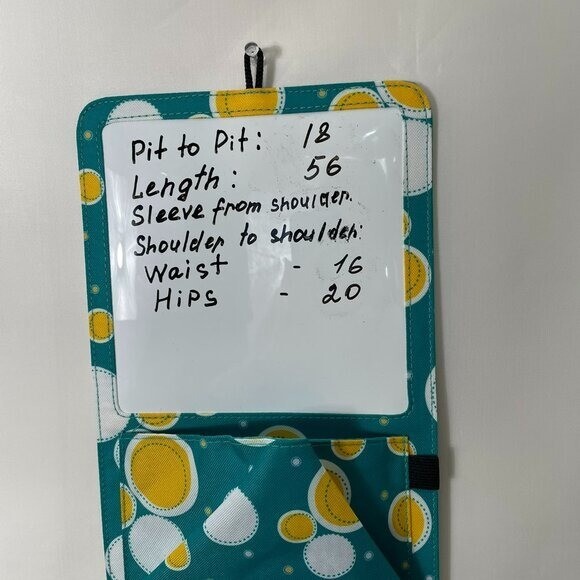 Pit to Pit: 18
Length: 56
Sleeve from shoulder.
Shoulder to shoulder:
Waist - 16
Hips - 20